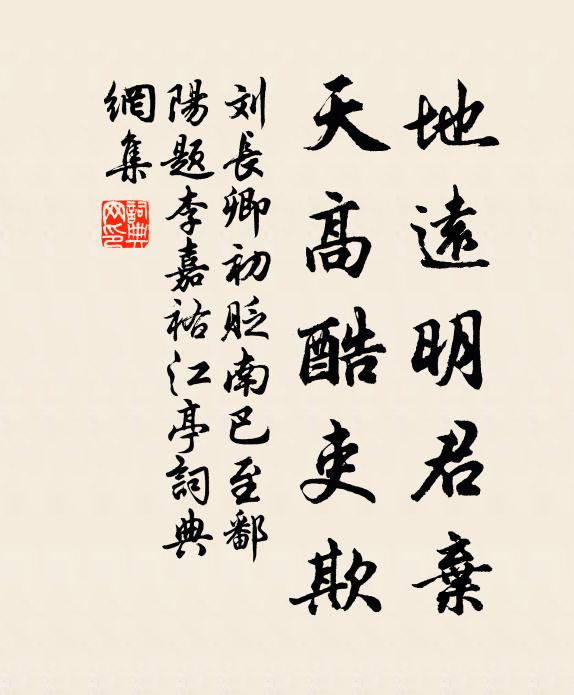 地遠明君棄
天高酷吏欺
刘長卿初貶南巴至鄱
陽題李嘉祐江亭詞典
網集
詞典
网印